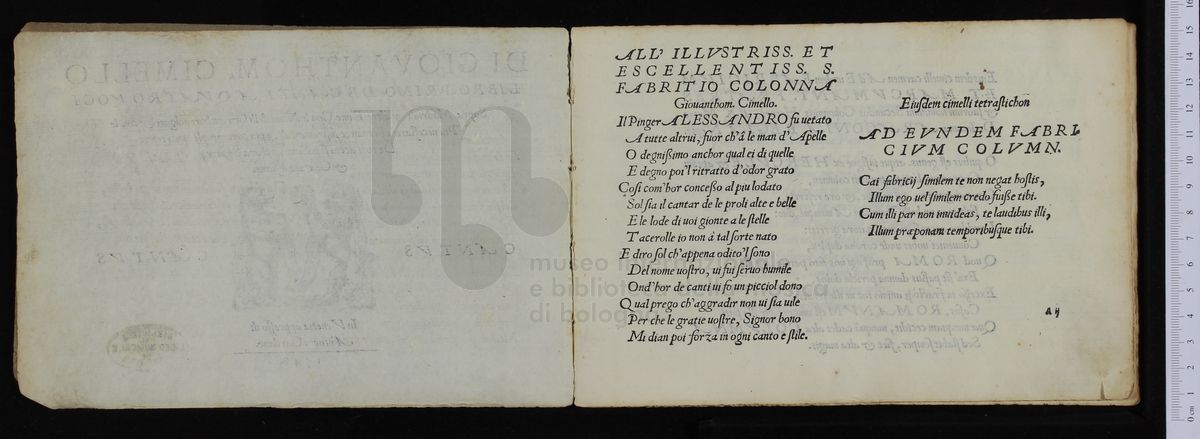 ALL' ILLVSTRISS. ET
ESCELLENTISS. S.
FABRITIO COLONNA
Giouanthom. Cimello.
Il Pinger ALESSANDRO fu uetato
A tutte altrui, fuor ch'à le man d'Apelle
O degnißimo anchor qual ei di quelle
E degno poi'l ritratto d'odor grato
Cosi com'hor conceßo al piu lodato
Sol sia il cantar de le proli alte e belle
E le lode di uoi gionte a le stelle
Tacerolle io non à tal sorte nato
E diro sol ch'appena odito'l sono
Del nome uostro, ui fui seruo humile
Ond'hor de canti ui fo un picciol dono
Qual prego ch'aggradir non ui sia uile
Per che le gratie uostre, Signor bono
Mi dian poi forza in ogni canto e stile.
Eiusdem cimelli tetrastichon
AD EVNDEM FABRI
CIVM COLVMN.
Cai fabricij similem te non negat hostis,
Illum ego uel similem credo fuiße tibi.
Cum illi par non inuideas, te laudibus illi,
Illum præponam temporibusque tibi.
A ij
museo
e biblioteca
di bologna